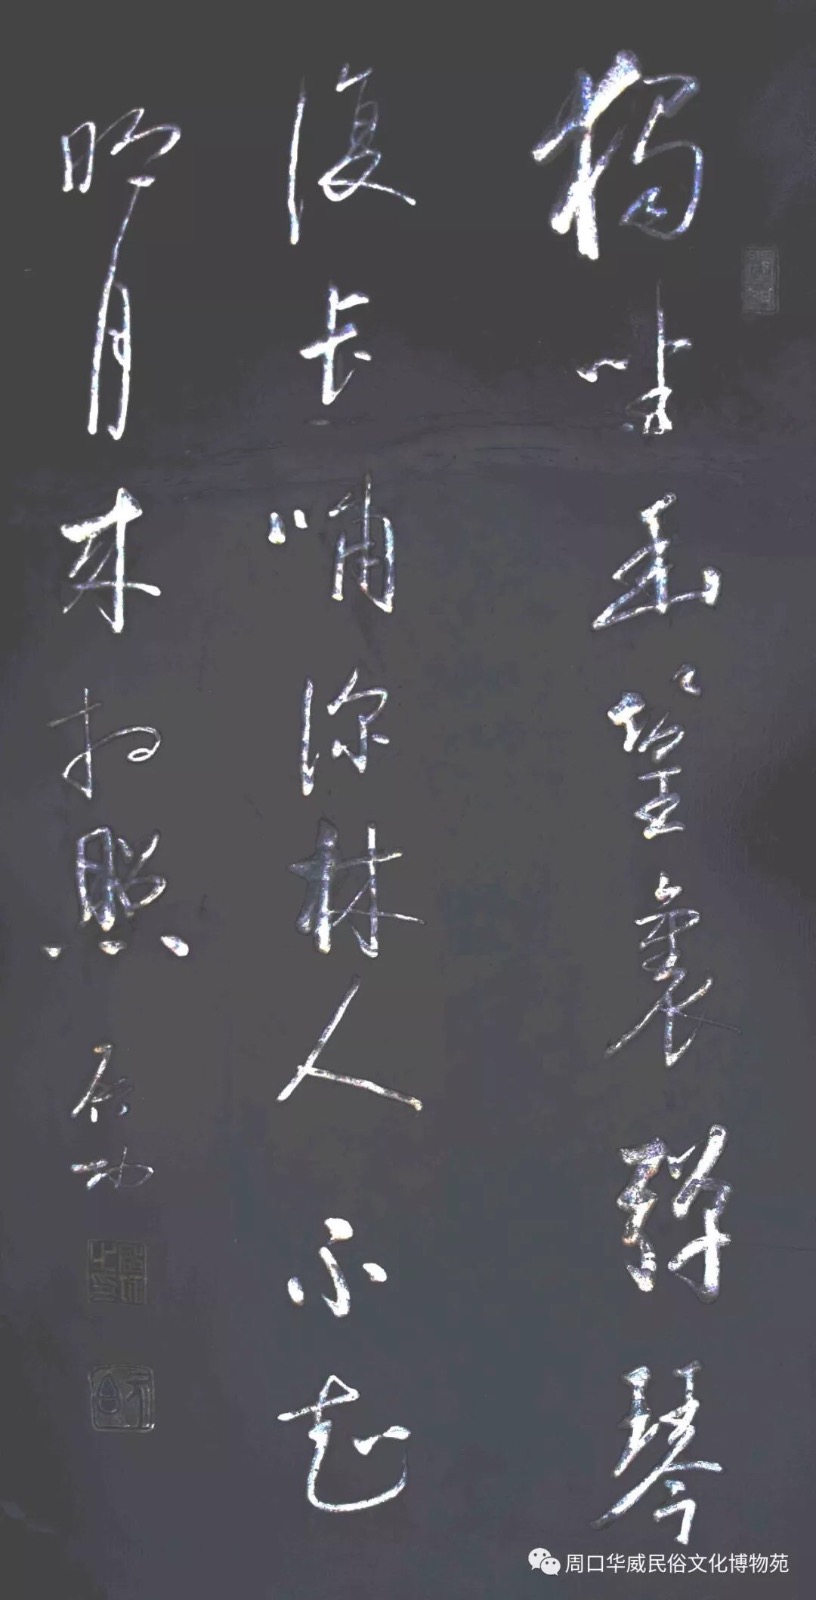 獨坐幽篁裏彈琴
復长嘯深林人不知
明月来相照 启功
周口华威民俗文化博物苑